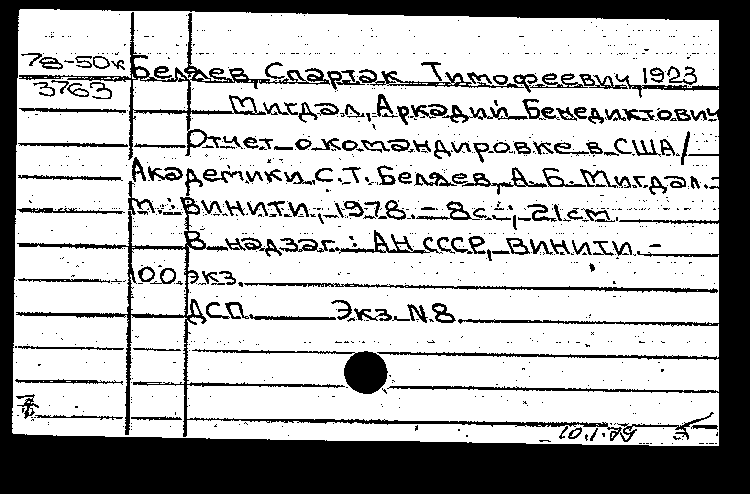 78-50к Беляев, Спартак Тимофеевич, 1923
3763
Мигдал, Аркадий Бенедиктович
Отчет о командировке в США/
Академики С.Т. Беляев, А.Б. Мигдал.-
М.: ВИНИТИ, 1978.- 8с.-; 21см.
В надзаг.: АН СССР, ВИНИТИ.-
100 экз.
ДСП. Экз. N8.
10.1.79